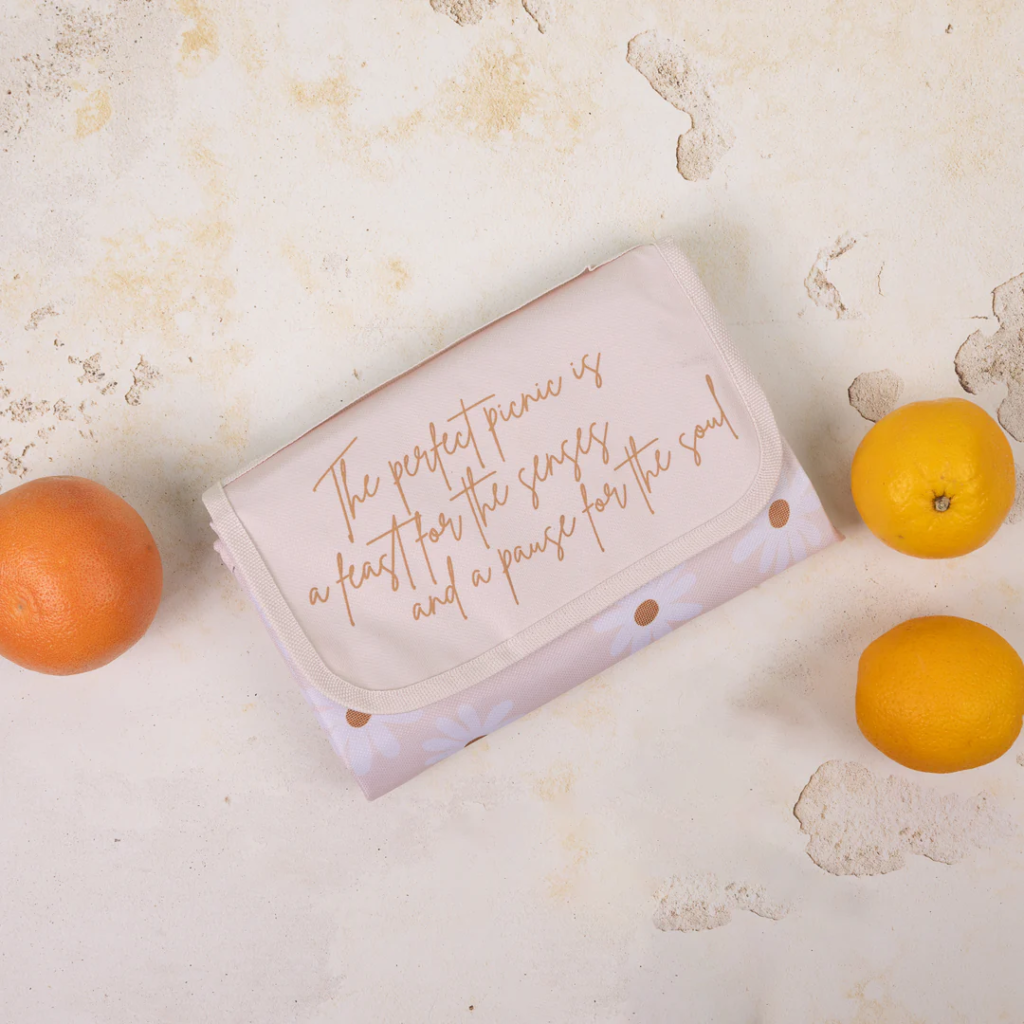 The perfect picnic is
a feast for the senses
and a pause for the soul